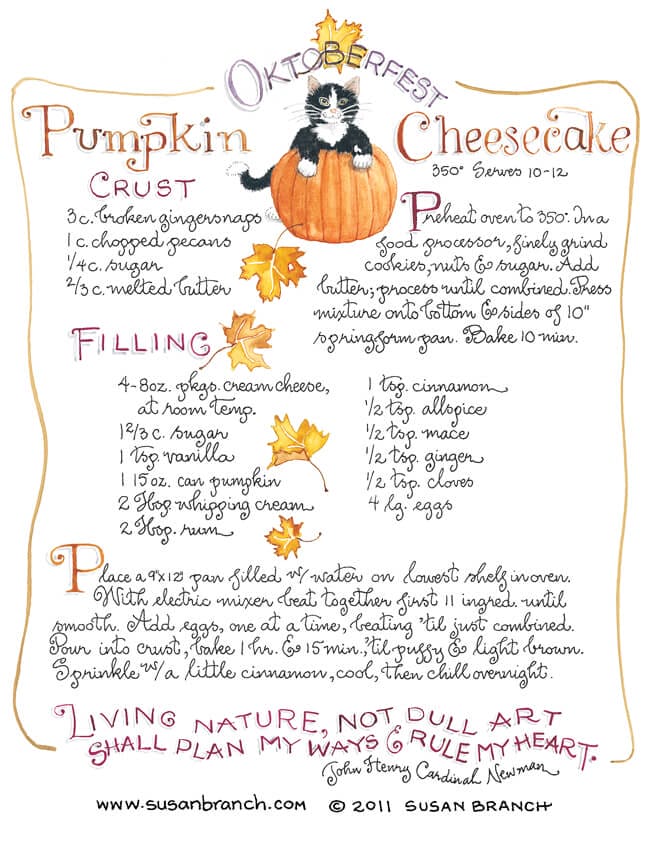 OKTOBERFEST
Pumpkin Cheesecake
350° Serves 10-12
CRUST
3 c. broken gingersnaps
1 c. chopped pecans
1/4 c. sugar
2/3 c. melted butter
Preheat oven to 350°. In a
food processor, finely grind
cookies, nuts & sugar. Add
butter; process until combined. Press
mixture onto bottom & sides of 10"
springform pan. Bake 10 min.
FILLING
4-8oz. pkgs. cream cheese,
at room temp.
1 2/3 c. sugar
1 tsp. vanilla
1 15 oz. can pumpkin
2 Tbsp. whipping cream
2 Tbsp. rum
1 tsp. cinnamon
1/2 tsp. allspice
1/2 tsp. mace
1/2 tsp. ginger
1/2 tsp. cloves
4 lg. eggs
Place a 9"x12" pan filled w/ water on lowest shelf in oven.
With electric mixer beat together first 11 ingred. until
smooth. Add eggs, one at a time, beating 'til just combined.
Pour into crust, bake 1 hr. & 15 min., 'til puffy & light brown.
Sprinkle w/ a little cinnamon, cool, then chill overnight.
LIVING NATURE, NOT DULL ART
SHALL PLAN MY WAYS & RULE MY HEART.
John Henry Cardinal Newman
www.susanbranch.com © 2011 SUSAN BRANCH